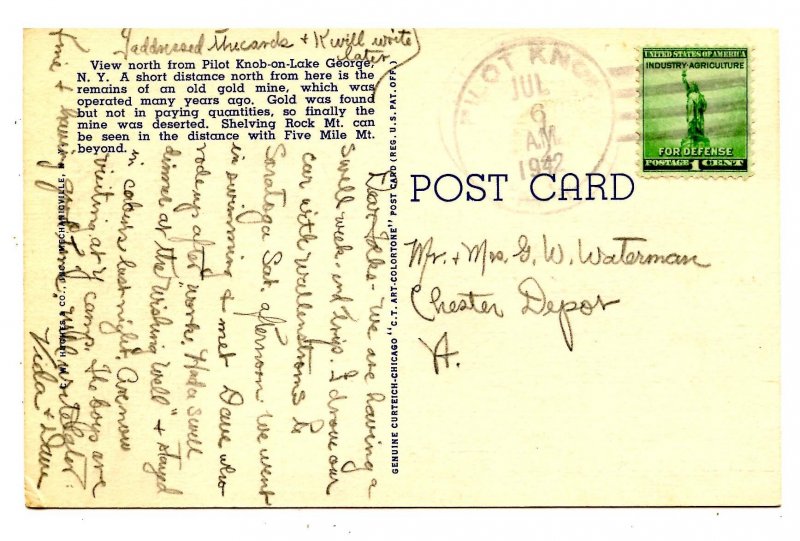 I addressed the cards + K will write
later
View north from Pilot Knob-on-Lake George,
N. Y. A short distance north from here is the
remains of an old gold mine, which was
operated many years ago. Gold was found
but not in paying quantities, so finally the
mine was deserted. Shelving Rock Mt. can
be seen in the distance with Five Mile Mt.
beyond.
Dear Folks - We are having a
swell week-end trip. I drove our
car with Wallenstroms to
Saratoga Sat. afternoon. We went
in swimming + met Dave who
rode up after work. Had a swell
dinner at the "Wishing Well" + stayed
in cabins last night. Are now
visiting at Y camp. The boys are
fine + having good time. Will write later.
Vida + Dave
C. W. HUGHES & CO., INC., MECHANICVILLE, N. Y.
GENUINE CURTEICH-CHICAGO "C. T. ART-COLORTONE" POST CARD (REG. U. S. PAT. OFF.)
POST CARD
PILOT KNOB
JUL
6
A.M.
1942
UNITED STATES OF AMERICA
INDUSTRY·AGRICULTURE
FOR DEFENSE
POSTAGE 1 CENT
Mr. + Mrs. G. W. Waterman
Chester Depot
Vt.